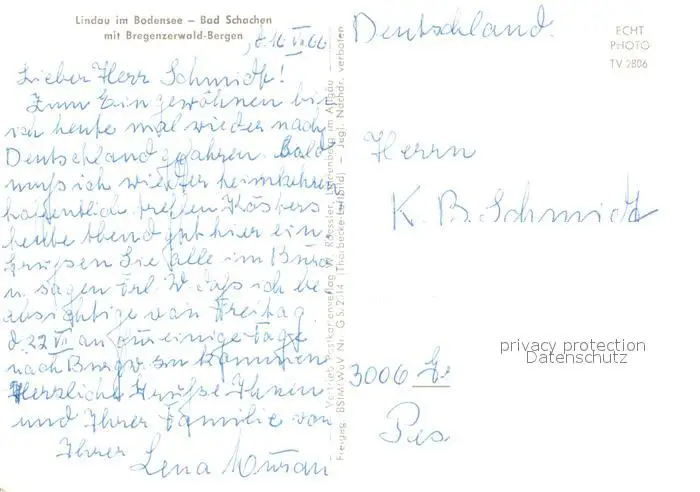 Lindau im Bodensee – Bad Schachen
mit Bregenzerwald-Bergen
d. 16. VII. 66
Lieber Herr Schmidt!
Zum Eingewöhnen bin
ich heute mal wieder nach
Deutschland gefahren. Bald
muß ich wieder heimkehren
hoffentlich treffen Käspers
heute Abend gut hier ein
Grüßen Sie alle im Büro
u. sagen Frl. W. daß ich be
absichtige von Freitag
d. 22 VII an für einige Tage
nach Burgw. zu kommen
Herzliche Grüße Ihnen
und Ihrer Familie von
Ihrer
Lena
Vertrieb: Postkartenverlag W. Roessler, im Allgäu – Jegl. Nachdr. verboten
(Thorbecke-Luftbild)
Deutschland.
ECHT
PHOTO
TV 2806
Herrn
K. B. Schmidt
3006
privacy protection
Datenschutz